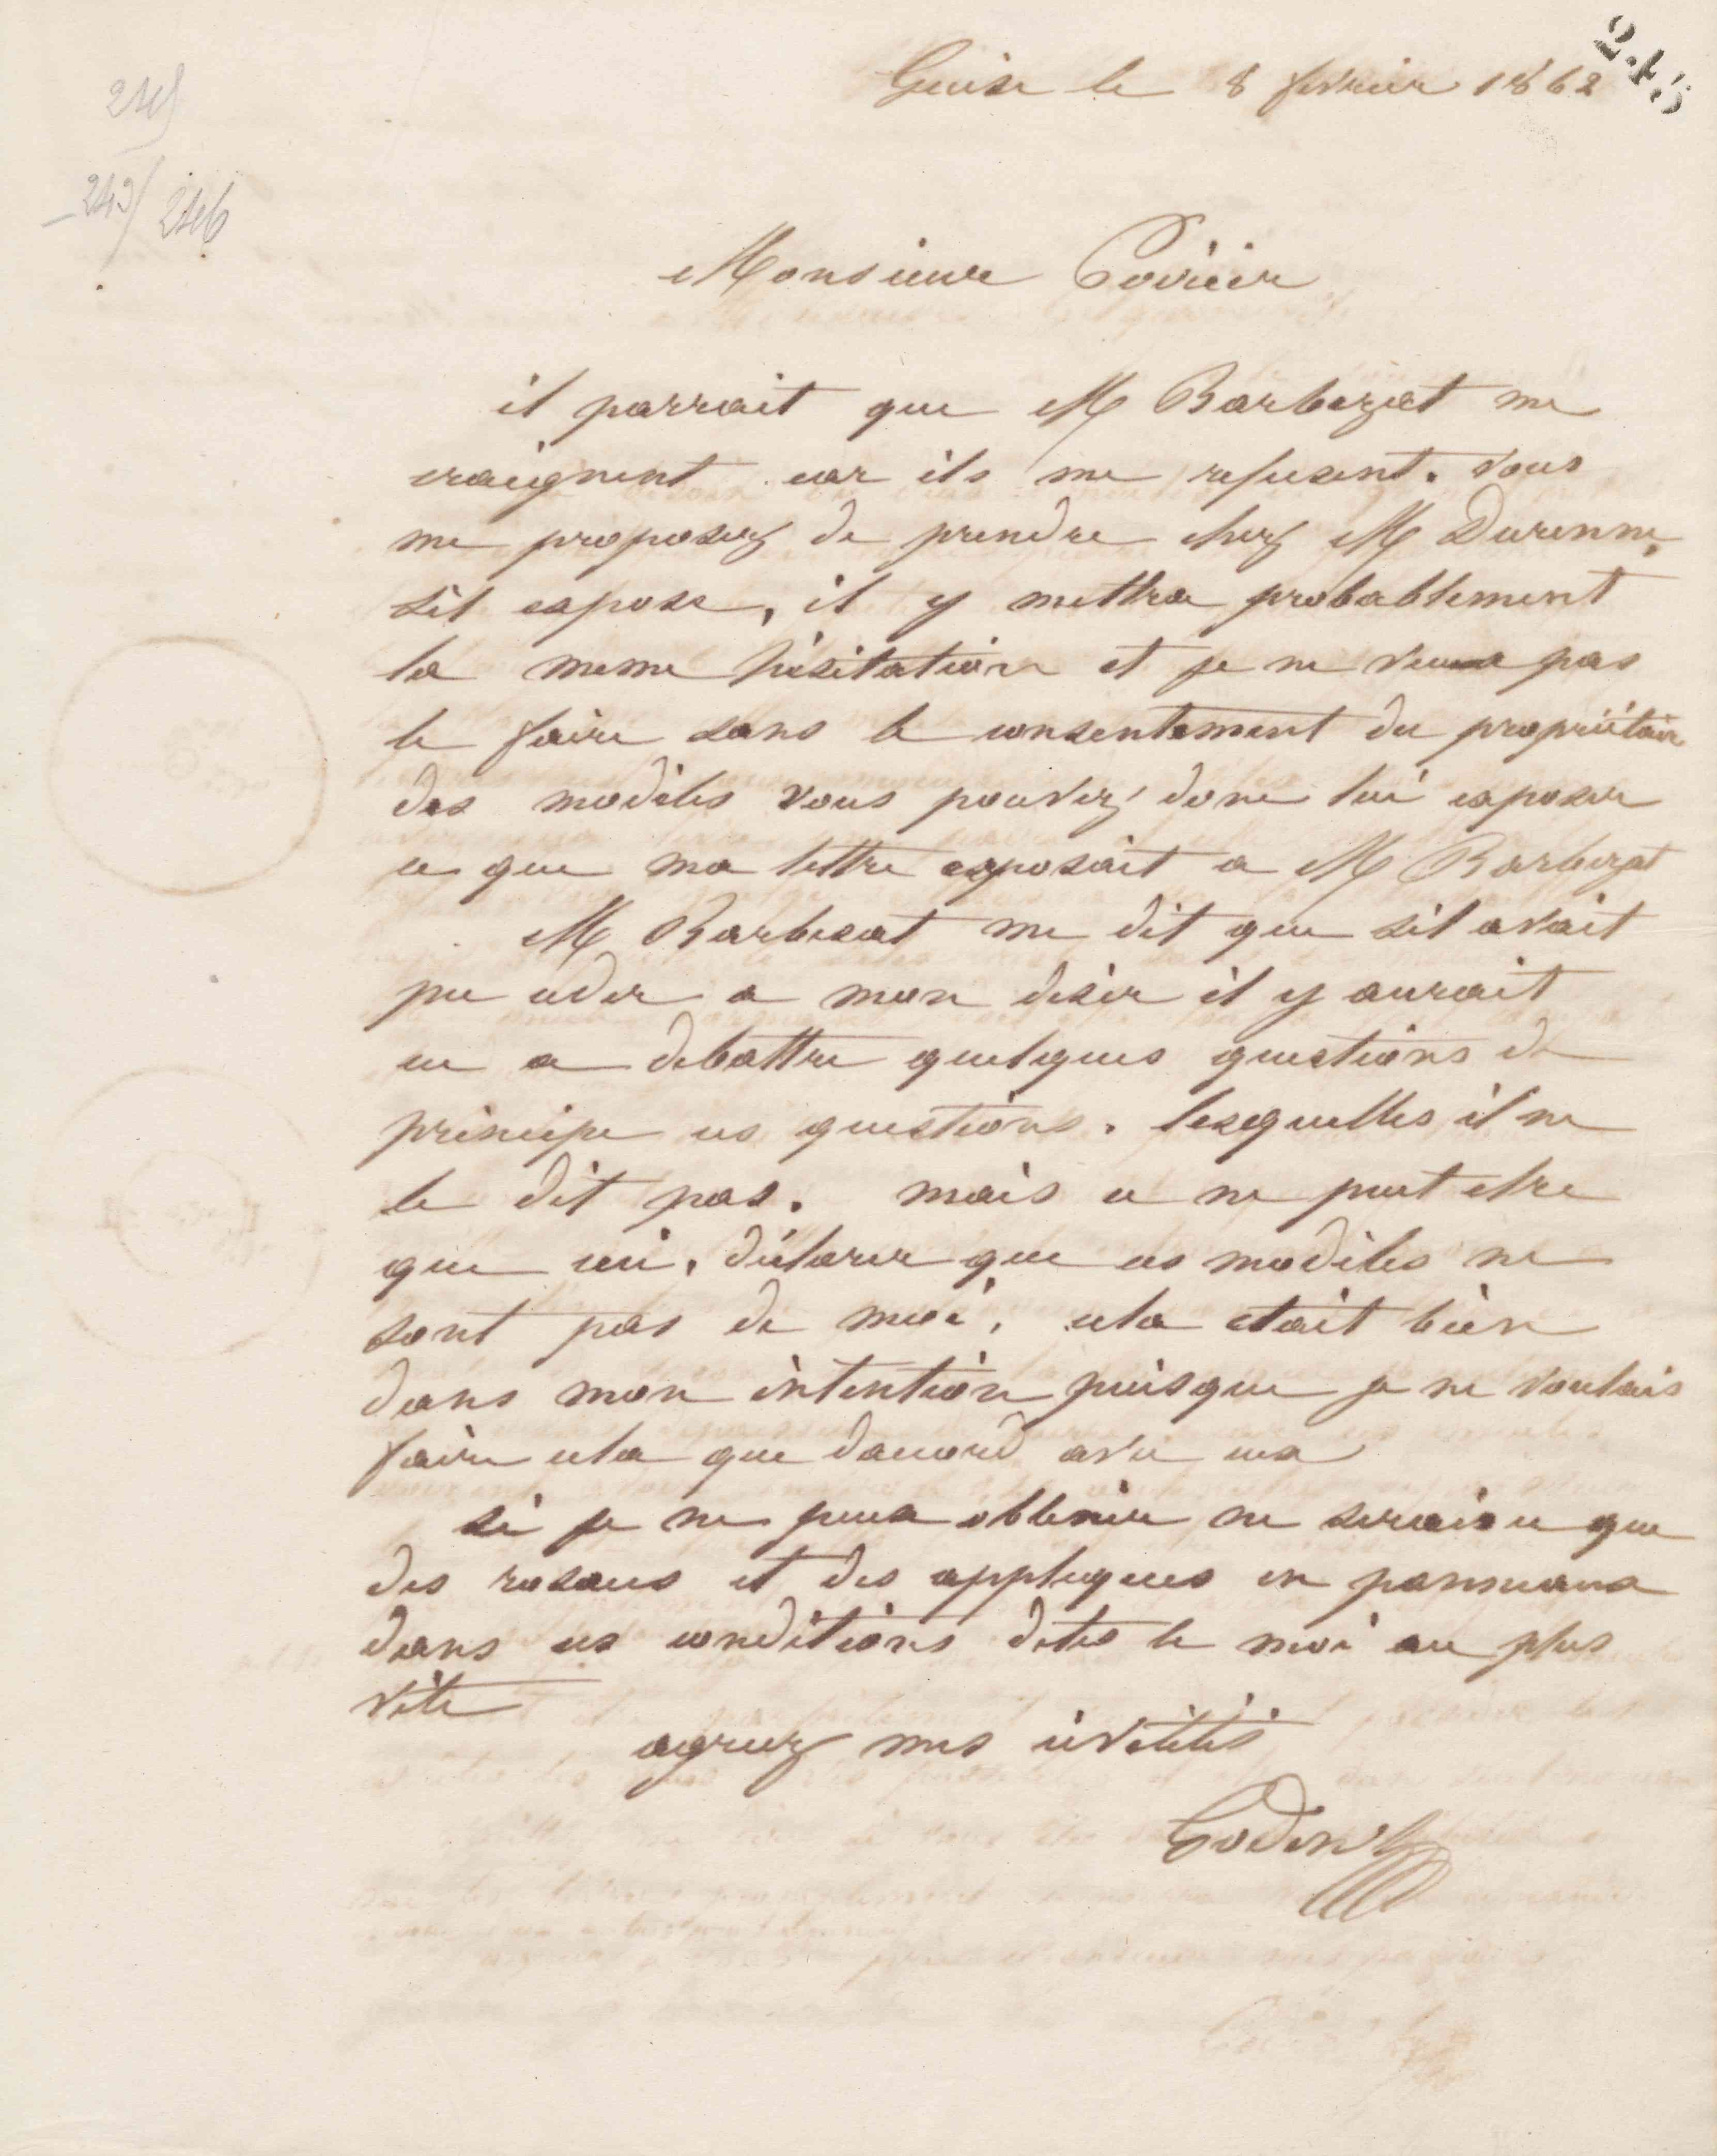 Guise le 8 fevrier 1862
245
245
243/246
Monsieur Poirier
il parrait que M Barbezat me
craignent car ils me refusent. vous
me proposez de prendre chez M Durenne,
sil expose, il y mettra probablement
la meme hésitation et je ne veux pas
le faire sans le consentement du propriétaire
des modèles vous pouvez donc lui exposer
ce que ma lettre exposait a M Barbezat
M Barbezat me dit que sil avait
pu ceder a mon desir il y aurait
eu a debattre quelques questions de
principe ces questions. lesquelles il ne
le dit pas. mais ce ne peut etre
que ceci. déclarer que ces modèles ne
sont pas de moi, cela etait bien
dans mon intention puisque je ne voulais
faire cela que daccord avec eux
si je ne peux obtenir ne serais ce que
des rosaces et des appliques en panneaux
dans ces conditions dites le moi au plus
vite
agreez mes civilités
Godin